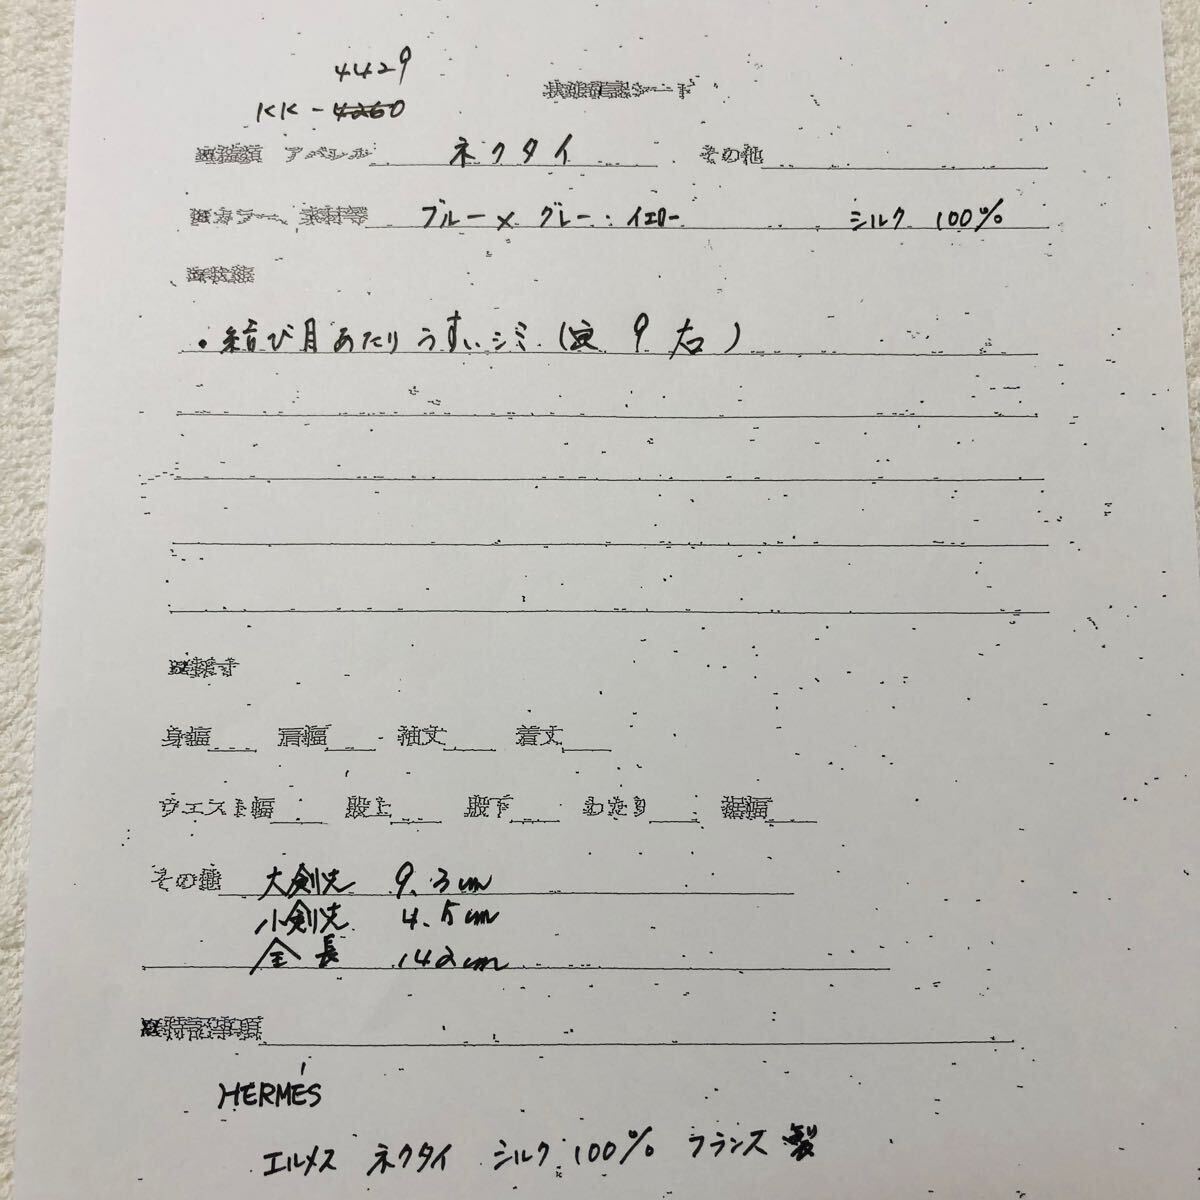 4429
KK-4260
状態確認シート
アパレル ネクタイ その他
カラー、素材等 ブルー×グレー:イエロー シルク 100%
・結び目あたりうすいシミ(写 9 右)
採寸
身幅 肩幅 袖丈 着丈
ウエスト幅 股上 股下 わたり 裾幅
その他 大剣先 9.3cm
小剣先 4.5cm
全長 142cm
特記事項
HERMÉS
エルメス ネクタイ シルク 100% フランス製